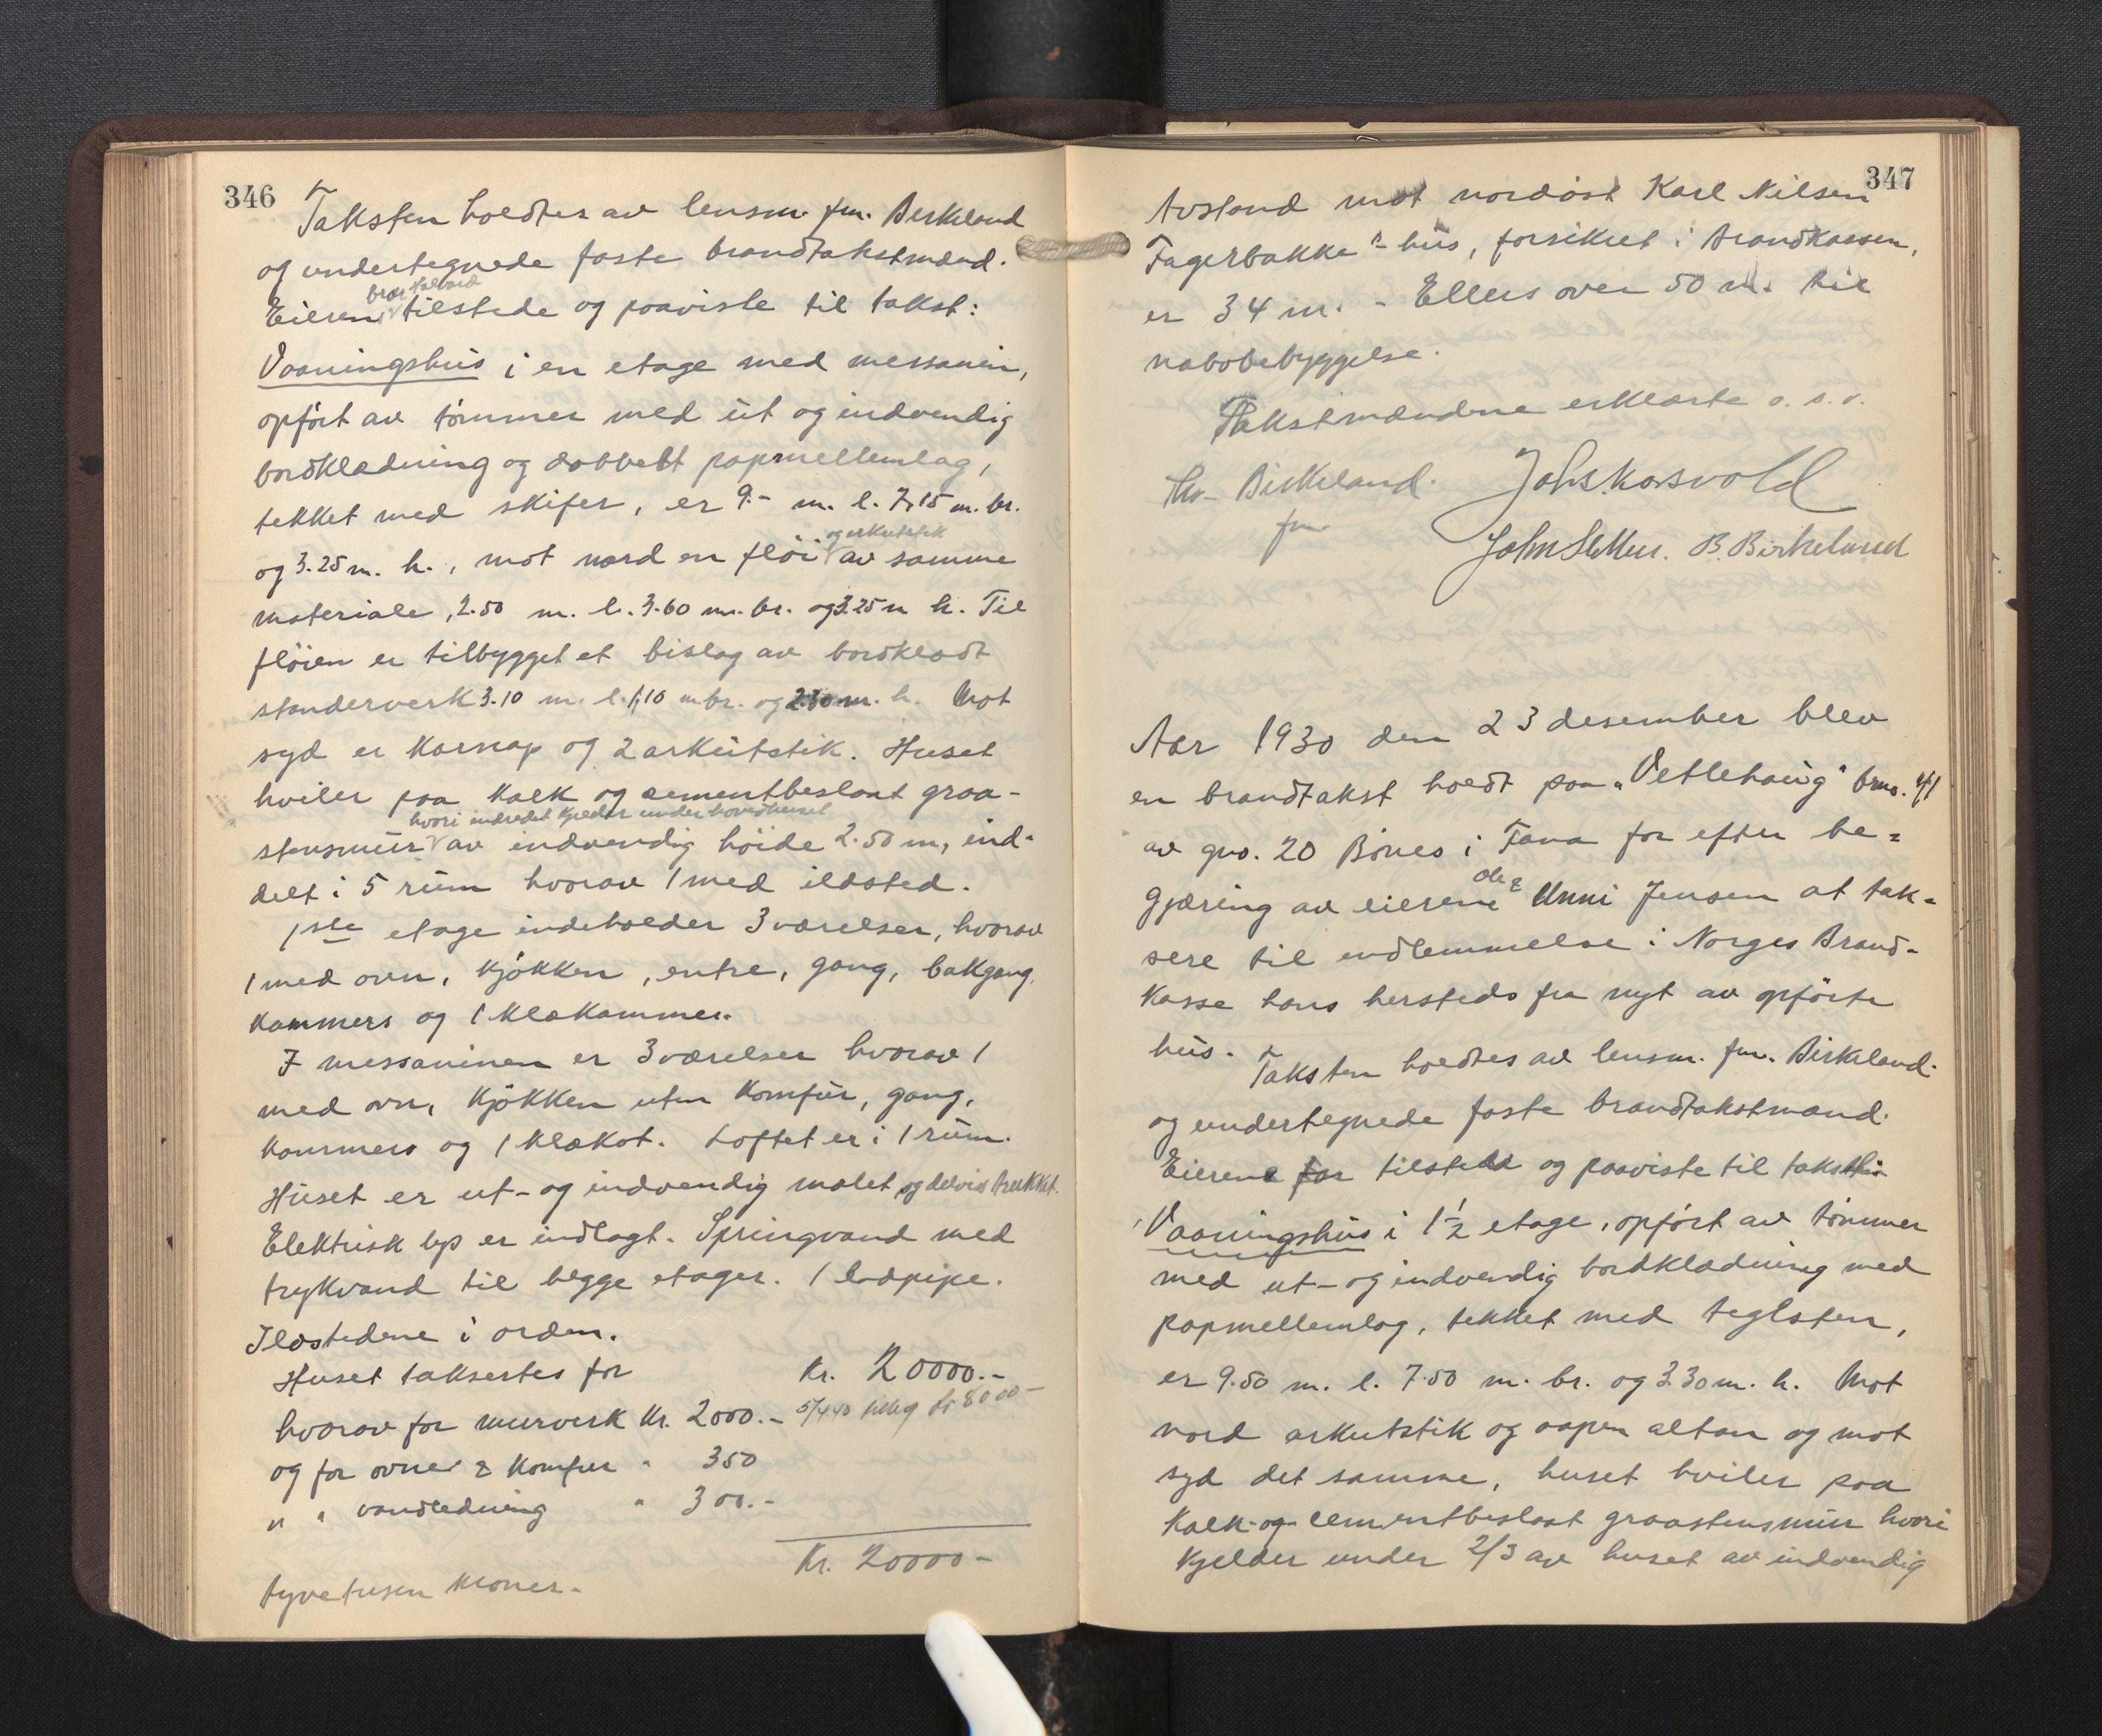 346
Taksten holdtes av lensm. fm. Birkeland
og undertegnede faste brandtakstmænd.
Eieren tilstede og paaviste til takst:
Vaaningshus i en etage med messanin,
opført av tømmer med ut og indvendig
bordklædning og dobbelt papmellemlag,
tekket med skifer, er 9.- m. l. 7,15 m. br.
og arkutstik
og 3.25 m. h., mot nord en fløi av samme
materiale, 2.50 m. l. 3.60 m. br. og 3.25 m h. Til
fløien er tilbygget et bislag av bordklædt
standerverk 3.10 m. l. 1,10 m br. og 2.30 m. h. Mot
syd er karnap og 2 arkutstik. Huset
hviler paa kalk og cementbeslaat graa-
hvori indredet kjelder under hovedhuset
stensmur av indvendig høide 2.50 m, ind-
delt i 5 rum hvorav 1 med ildsted.
1ste etage indeholder 3 værelser, hvorav
1 med ovn, kjøkken, entre, gang, bakgang,
kammers og 1 klækammer.
I messaninen er 3 værelser hvorav 1
med ovn, kjøkken uten komfur, gang,
kammers og 1 klækot. Loftet er i 1 rum.
Huset er ut- og indvendig malet og delvis trukket.
Elektrisk lys er indlagt. Springvand med
trykvand til begge etager. 1 lødpipe.
Ildstedene i orden.
Huset taksertes for Kr. 20000.-
hvorav for murverk Kr. 2000.- 5/4 40 tillæg kr 8000-
og for ovner & komfur " 350
" " vandledning " 300.-
Kr. 20000-
tyvetusen kroner.-
347
Avstand mot nordøst Karl Nilsen
Fagerbakke's hus, forsikret i Brandkassen,
er 34 m. - Ellers over 50 m. til
nabobebyggelse.
Takstmændene erklærte o. s. v.
Birkeland. Johs. Korsvold
fm.
John Sletten. B. Birkelund
Aar 1930 den 23 desember blev
en brandtakst holdt paa "Vetlehaug" brno. 41
av gno. 20 Bønes i Fana for efter be-
Ole &
gjæring av eierene Unni Jensen at tak-
sere til indlemmelse i Norges Brand-
kasse hans hersteds fra nyt av opførte
hus.
Taksten holdtes av lensm. fm. Birkeland
og undertegnede faste brandtakstmænd.
Eierene var tilstede og paaviste til takst:
Vaaningshus i 1 1/2 etage, opført av tømmer
med ut- og indvendig bordklædning med
papmellemlag, tekket med teglsten,
er 9.50 m. l. 7.50 m. br. og 3.30 m. h. Mot
nord arkutstik og aapen altan og mot
syd det samme, huset hviler paa
kalk-og cementbeslaat graastensmur hvori
kjelder under 2/3 av huset av indvendig